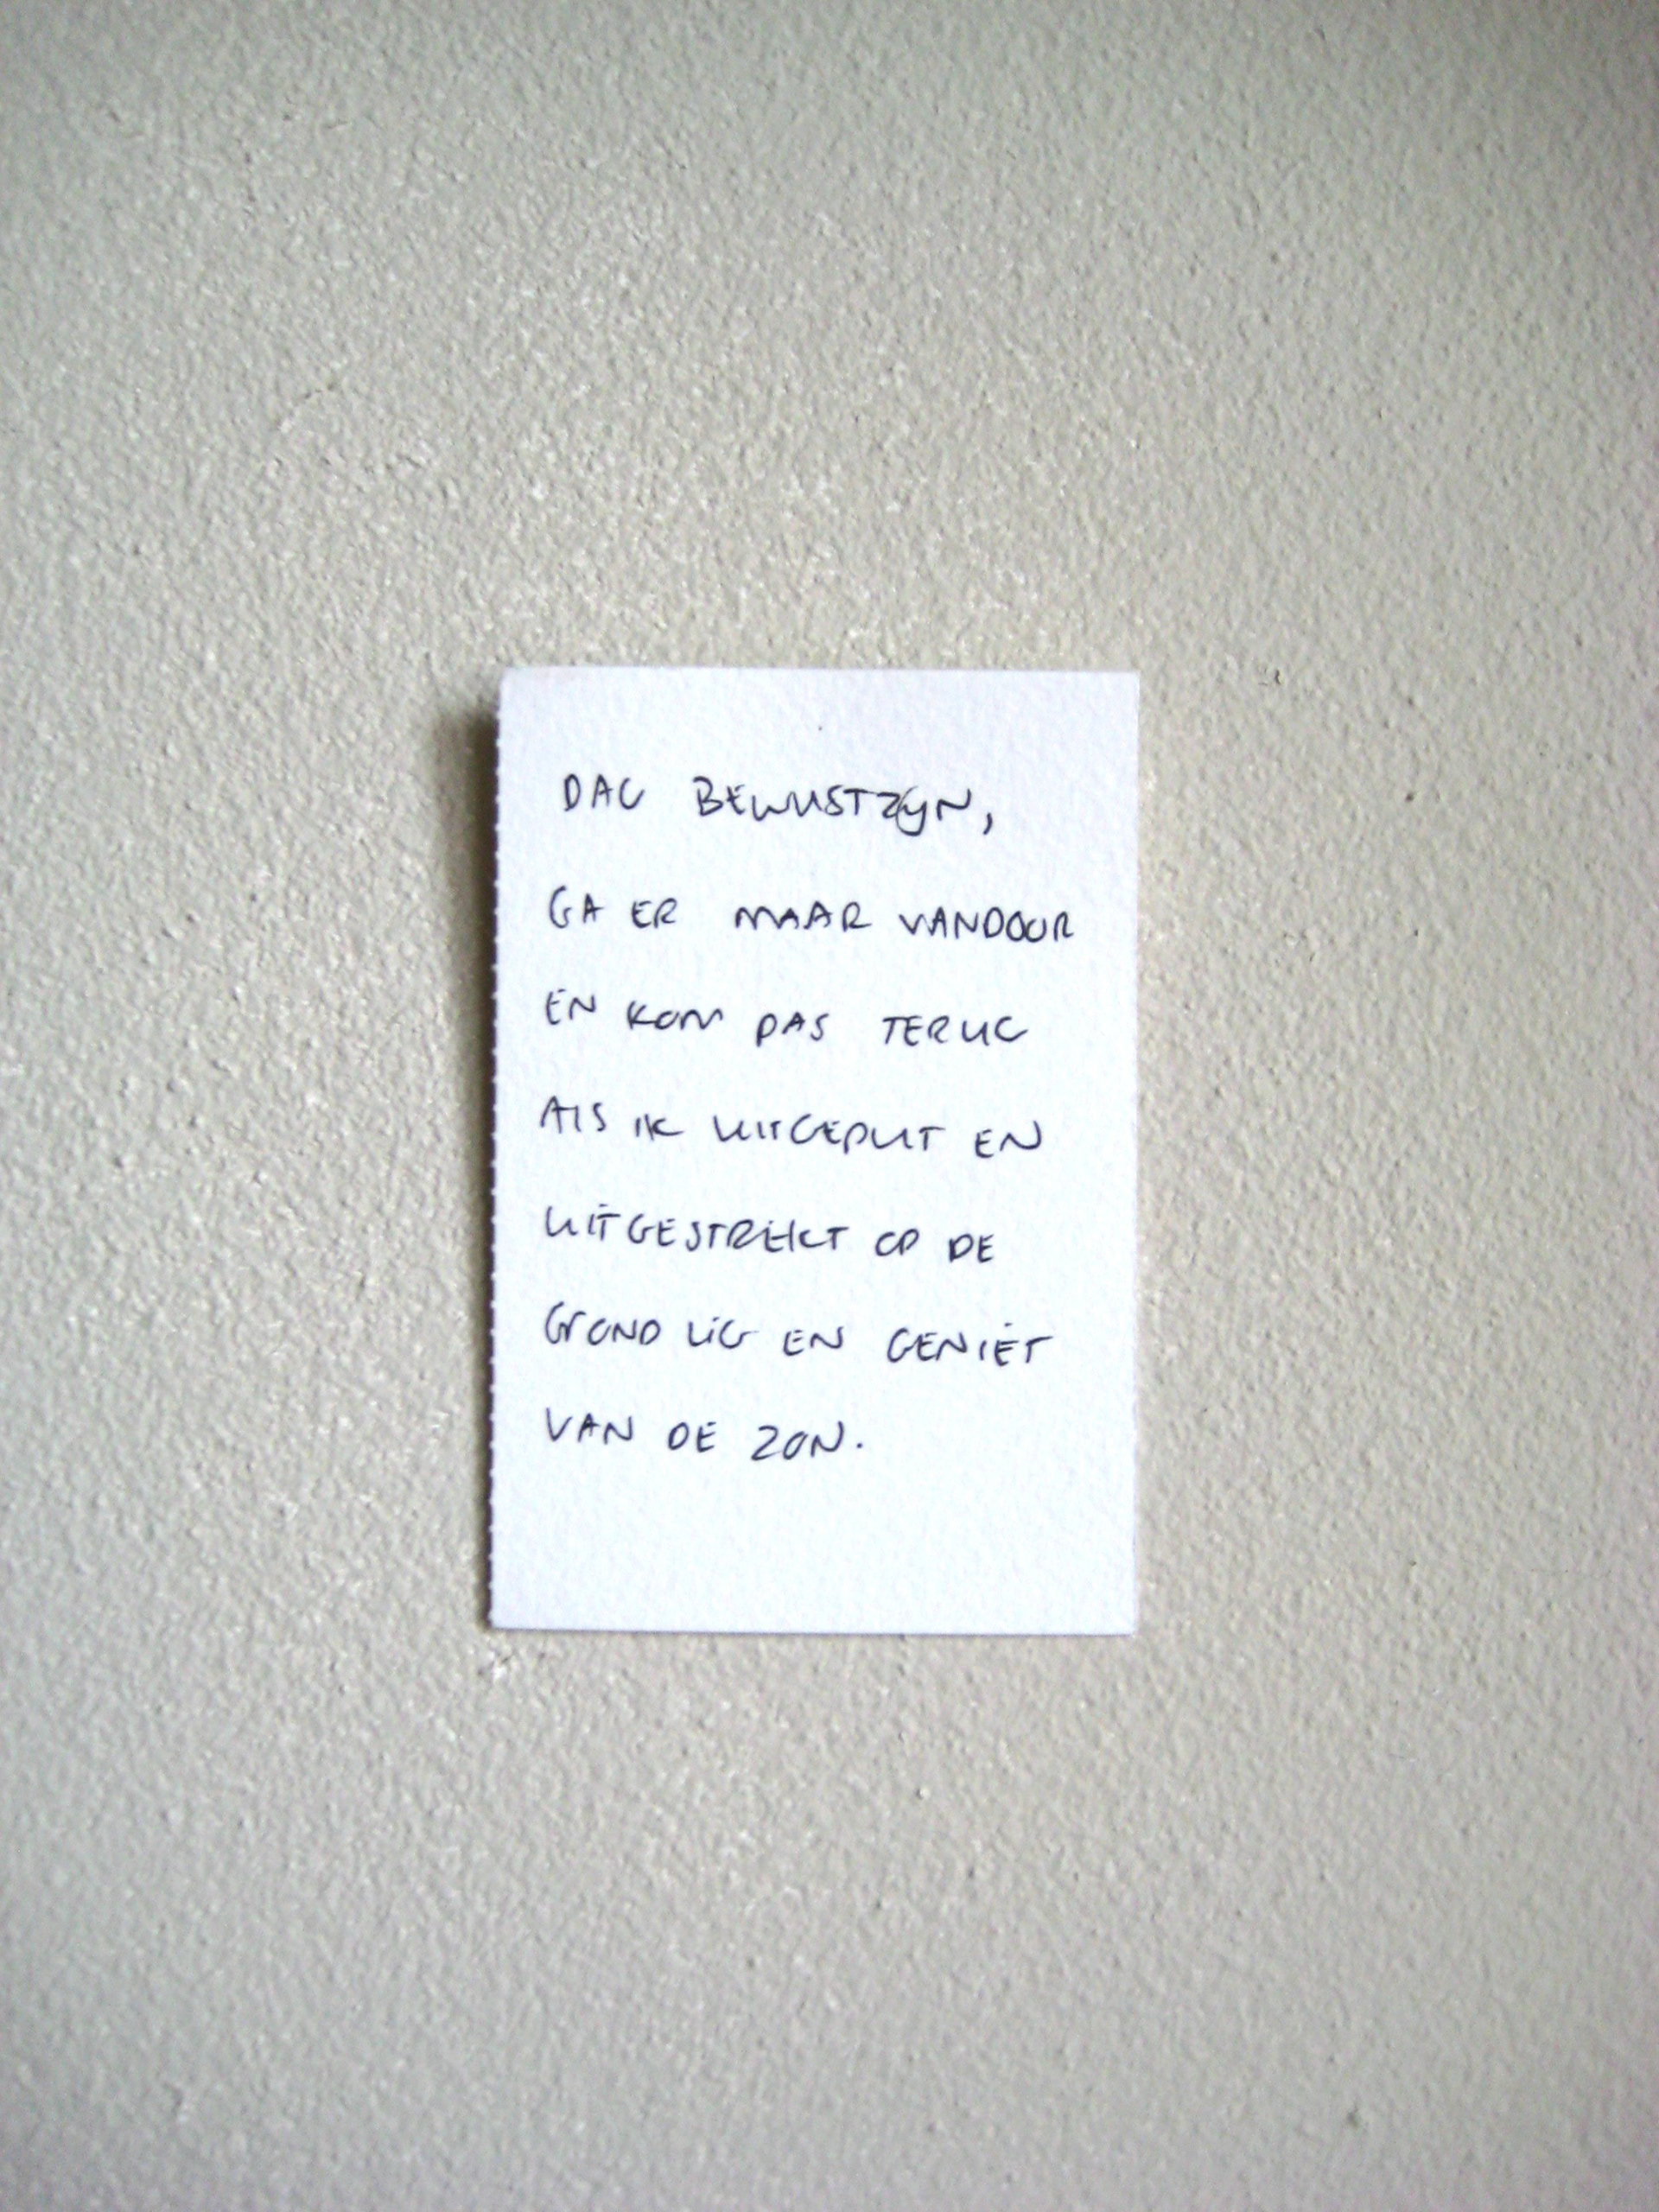 DAG BEWUSTZIJN,
GA ER MAAR VANDOOR
EN KOM PAS TERUG
ALS IK UITGEPUT EN
UITGESTREKT OP DE
GROND LIG EN GENIET
VAN DE ZON.